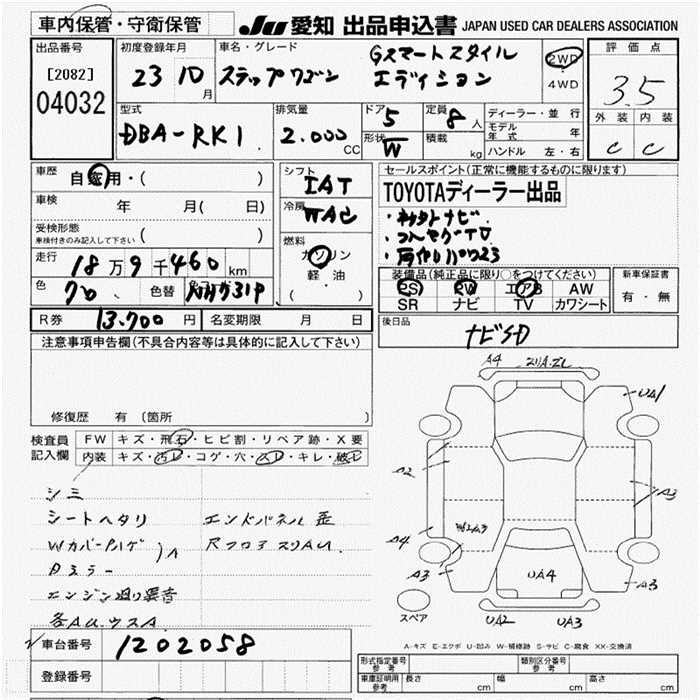 車内保管・守衛保管
JU 愛知 出品申込書 JAPAN USED CAR DEALERS ASSOCIATION
出品番号 初度登録年月 車名・グレード 評価点
[2082] 23 10 月 ステップワゴン Gスマートスタイル エディション 2WD ・ 4WD 3.5
04032
型式 排気量 ドア 定員 ディーラー・並行 外装 内装
DBA-RK1 2.000 CC 5 8人 モデル年式 年 C C
形状 W 積載 kg ハンドル 左・右
車歴 自家用・( ) シフト IAT セールスポイント(正常に機能するものに限ります)
車検 年 月( 日) 冷房 WAC TOYOTAディーラー出品
受検形態 ( )
車検付きのみ記入して下さい
・コンセグTV
走行 18万9千460km 燃料 ガソリン 軽・油 ( )
装備品(純正品に限り○をつけてください) 新車保証書
色 クロ 色替 NH731P PS PW エアB AW 有・無
SR ナビ TV カワシート
R券 13.700円 名変期限 月 日 後日品
ナビSD
注意事項申告欄(不具合内容等は具体的に記入して下さい)
修復歴 有(箇所
検査員 FW キズ・飛石・ヒビ割・リペア跡・X要
記入欄 内装 キズ・汚レ・コゲ・穴・スレ・キレ・破レ
シミ
シートヘタリ エンドパネル歪
Wカバーハゲ Rフロアスリキ
Dミラー
エンジン廻り異音
各AUWSA
車台番号 1202058
登録番号
A4
UA1
A2
A3
A4
W2A3
A3
UA4
A3
スペア
UA2 UA3
A-キズ E-エクボ U-凹み W-補修跡 S-サビ C-腐食 XX-交換済
形式指定番号 参考 類別区分番号 参考
車庫証明用 参考 長さ cm 幅 cm 高さ cm